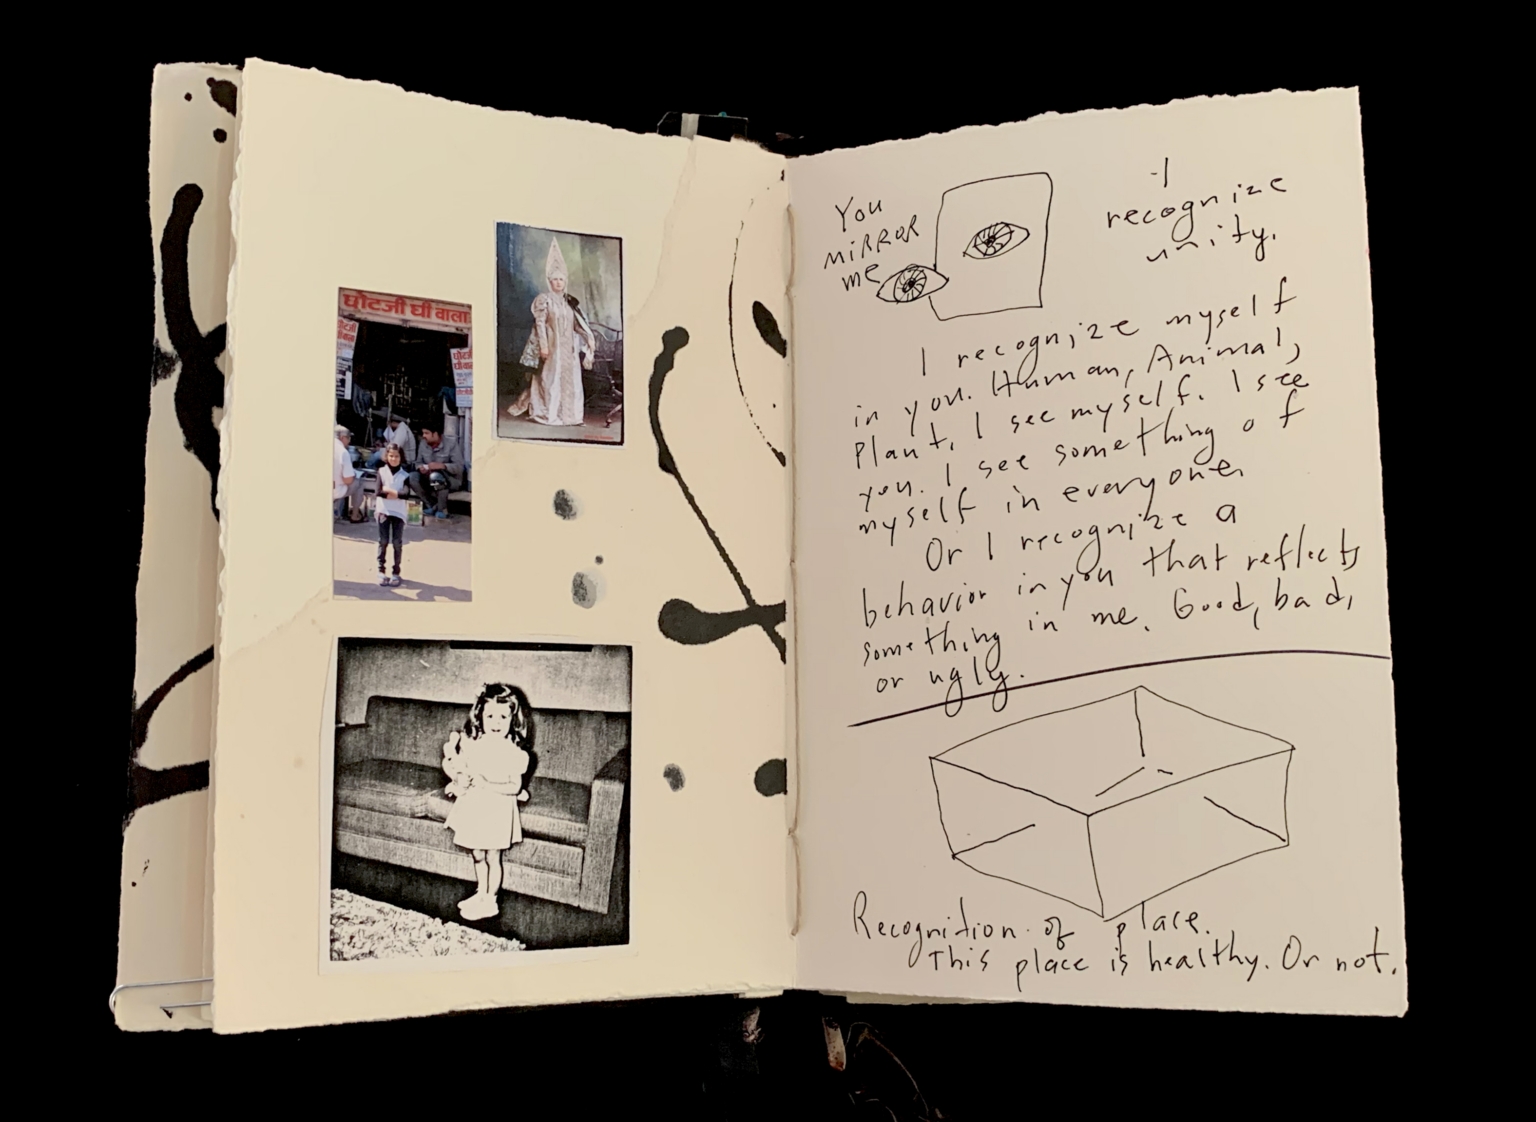 घोटजी घी वाला
You
MIRROR
me
I
recognize
unity.
I recognize myself
in you. Human, Animal,
Plant, I see myself. I see
you. I see something of
myself in everyone.
Or I recognize a
behavior in you that reflects
something in me. Good, bad,
or ugly.
Recognition of place.
This place is healthy. Or not.